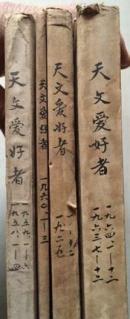 天文爱好者
一九五八.一—四
一九五九.一—六
天文爱好者
一九六〇.一—三
天文爱好者
一九六二.
天文爱好者
一九六三.七—十二
一九六四.一—十二